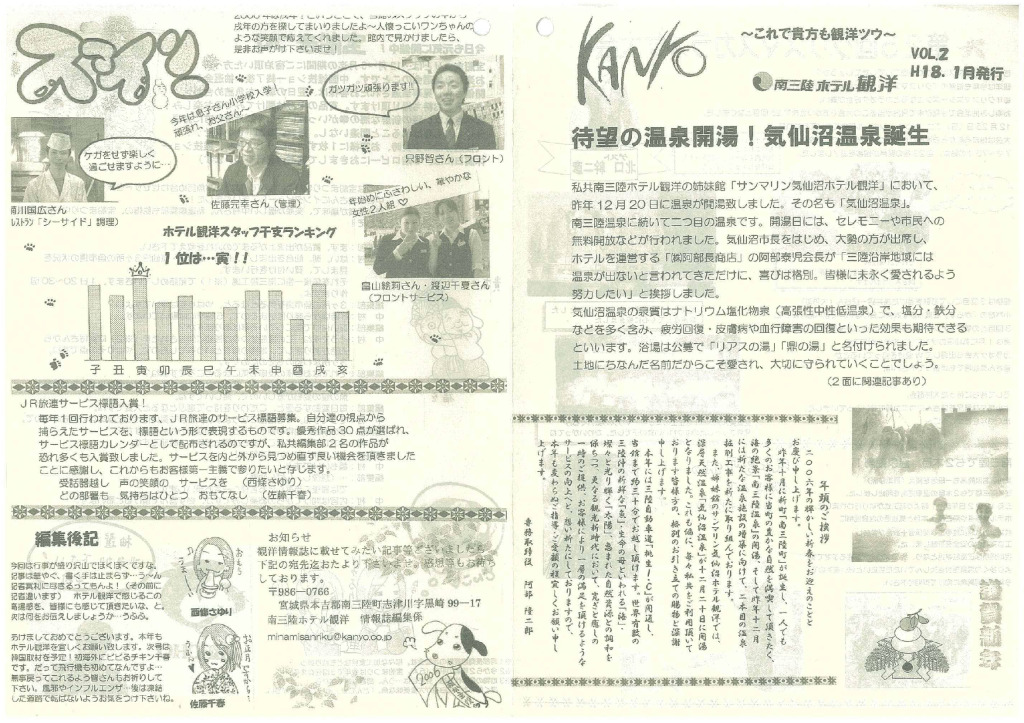 KANYO
～これで貴方も観洋ツウ～
南三陸ホテル観洋
VOL.2
H18.1月発行
待望の温泉開湯！気仙沼温泉誕生
私共南三陸ホテル観洋の姉妹館「サンマリン気仙沼ホテル観洋」において、
昨年12月20日に温泉が開湯致しました。その名も「気仙沼温泉」。
南三陸温泉に続いて二つ目の温泉です。開湯日には、セレモニーや市民への
無料開放などが行われました。気仙沼市長をはじめ、大勢の方が出席し、
ホテルを運営する「㈱阿部長商店」の阿部泰児会長が「三陸沿岸地域には
温泉が出ないと言われてきただけに、喜びは格別。皆様に末永く愛されるよう
努力したい」と挨拶しました。
気仙沼温泉の泉質はナトリウム塩化物泉（高張性中性低温泉）で、塩分・鉄分
などを多く含み、疲労回復・皮膚病や血行障害の回復といった効果も期待できる
といいます。浴場は公募で「リアスの湯」「鼎の湯」と名付けられました。
土地にちなんだ名前だからこそ愛され、大切に守られていくことでしょう。
（２面に関連記事あり）
年頭のご挨拶
二〇〇六年の輝かしい新春をお迎えのことと
お慶び申し上げます。
昨年十月に新町「南三陸町」が誕生し、一人でも
多くのお客様に当町の豊かな自然を満喫して頂きたく、
また、姉妹館のサンマリン気仙沼ホテル観洋では、
深層天然温泉「気仙沼温泉」が十二月二十日に開湯
となりました。これも偏に、毎々私共をご利用頂いて
おります皆様方の、格別のお引き立ての賜物と深謝
申し上げます。
本年には三陸自動車道「桃生Ｉ・Ｃ」が開通し、
当館まで約三十分でお越し頂けます。世界有数の
三陸沖の新鮮な「魚」・生命の母といわれる「海」・
燦々と光り輝く「太陽」、恵まれた自然資源との調和を
保ちつつ、更なる観光新時代において、寛ぎと癒しの
一時のご提供、お客様により一層の満足を頂けるような
サービスの向上へと、想い新たにしておりますので、
本年も変わらぬご指導とご愛顧の程宜しくお願い申し
上げます。
専務取締役　阿部　隆二郎
戌年の方を探してまいりましたよ～人懐っこいワンちゃんの
ような笑顔で応えてくれました。館内で見かけましたら、
是非お声がけ下さいませ！
ガツガツ頑張ります!!
只野智さん（フロント）
今年は息子さん小学校入学
頑張れ、お父さん～
佐藤完幸さん（管理）
ケガをせず楽しく
過ごせますように…
川国広さん
ﾚｽﾄﾗﾝ「シーサイド」調理）
年始めにふさわしい、華やかな
女性２人組♡
畠山絵莉さん・渡辺千夏さん
（フロントサービス）
ホテル観洋スタッフ干支ランキング
１位は…寅！！
子 丑 寅 卯 辰 巳 午 未 申 酉 戌 亥
ＪＲ旅連サービス標語入賞！
毎年１回行われております、ＪＲ旅連のサービス標語募集。自分達の視点から
捕らえたサービスを、標語という形で表現するものです。優秀作品30点が選ばれ、
サービス標語カレンダーとして配布されるのですが、私共編集部２名の作品が
恐れ多くも入賞致しました。サービスを内と外から見つめ直す良い機会を頂きました
ことに感謝し、これからもお客様第一主義で参りたいと存じます。
受話器越し　声の笑顔の　サービスを　（西條さゆり）
どの部署も　気持ちはひとつ　おもてなし　（佐藤千春）
編集後記
今回は行事が盛り沢山でほくほくですな。
記事は華やぐ、書く手は止まらず…う～ん
記者冥利に尽きるってもんよ！（その前に
記者違います）　ホテル観洋で感じるこの
高揚感を、皆様にも感じて頂きたいな、と。
次は何をお伝えしましょうか…うふふ。
西條さゆり
あけましておめでとうございます。本年も
ホテル観洋を宜しくお願い致します。次号は
韓国取材を予定！初海外にビビるチキン千春
です。だって飛行機も初めてなんですよ…
無事戻ってこれるよう皆さんもお祈りして
下さい。風邪やインフルエンザ…後は凍結
した道路で転ばないようお気をつけ下さいね。
佐藤千春
お知らせ
観洋情報誌に載せてみたい記事等ございましたら
下記の宛先迄おたより下さいませ。感想等もお待ち
しております。
〒986―0766
宮城県本吉郡南三陸町志津川字黒崎99―17
南三陸ホテル観洋　情報誌編集係
minamisanriku@kanyo.co.jp
2006